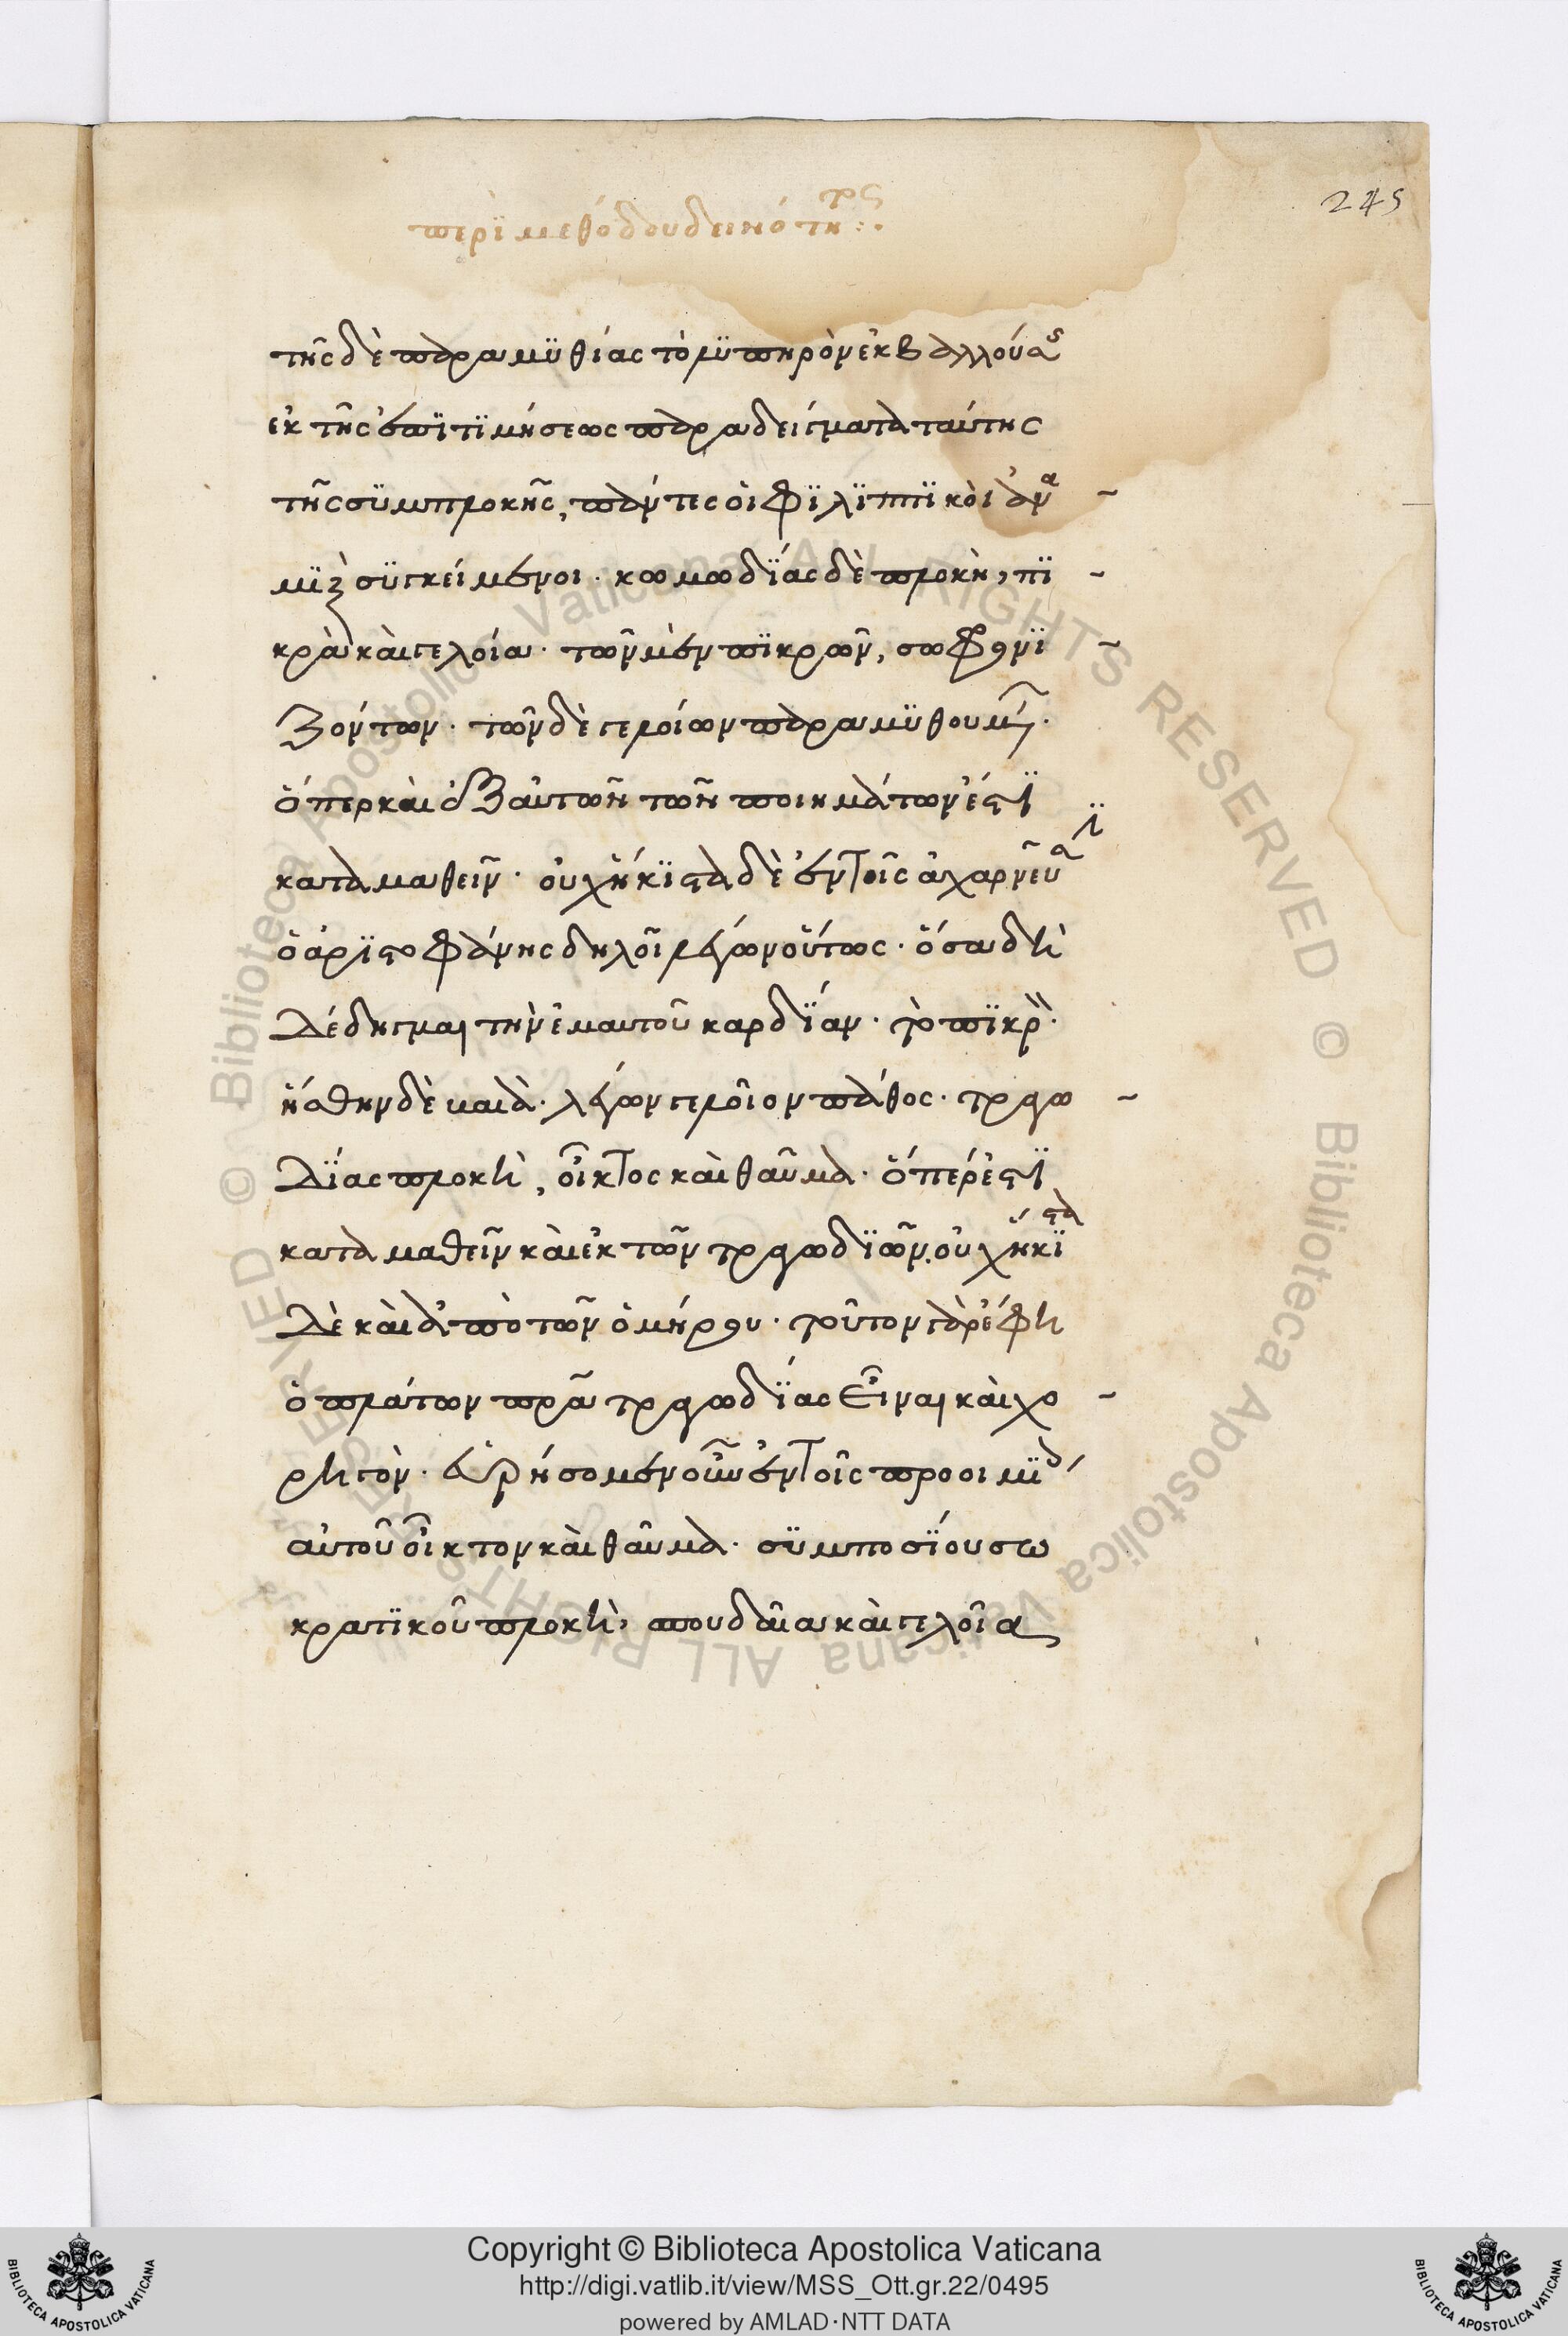 περὶ μεθόδου δεινότητος :·
245
τῆς δὲ παραμυθίας τὸ λυπηρὸν ἐκβαλλούσης
ἐκ τῆς ἐπιτιμήσεως παραδείγματα ταύτης
τῆς συμπλοκῆς, πάντες οἱ φιλιππικοὶ ἀνα
μὶξ συγκείμενοι · κωμωδίας δὲ πλοκὴ, πι
κρὰ καὶ γελοῖα · τῶν μὲν πικρῶν, σωφρονι
ζόντων · τῶν δὲ γελοίων παραμυθουμένων ·
ὅπερ καὶ ἐξ αὐτῶν τῶν ποιημάτων ἐστὶ
καταμαθεῖν · οὐχ ἥκιστα δὲ ἐν τοῖς ἀχαρνεῦσι
ὁ ἀριστοφάνης δηλοῖ λέγων οὕτως · ὅσα δὴ
δέδηγμαι τὴν ἐμαυτοῦ καρδίαν · τὸ πικρὸν ·
ἥσθην δὲ βαιὰ · λέγων γελοῖον πάθος · τραγω
δίας πλοκὴ, οἶκτος καὶ θαῦμα · ὅπερ ἐστὶ
καταμαθεῖν καὶ ἐκ τῶν τραγωδιῶν. οὐχ ἥκιστα
δὲ καὶ ἀπὸ τῶν ὁμήρου · τοῦτον γὰρ ἔφη
ὁ πλάτων πρα τραγωδίας εἶναι καὶ χο
ρηγὸν · εὑρήσομεν οὖν ἐν τοῖς προοιμίοις
αὐτοῦ οἶκτον καὶ θαῦμα · συμποσίου σω
κρατικοῦ πλοκὴ, σπουδαῖα καὶ γελοῖα
Copyright © Biblioteca Apostolica Vaticana
http://digi.vatlib.it/view/MSS_Ott.gr.22/0495
powered by AMLAD·NTT DATA